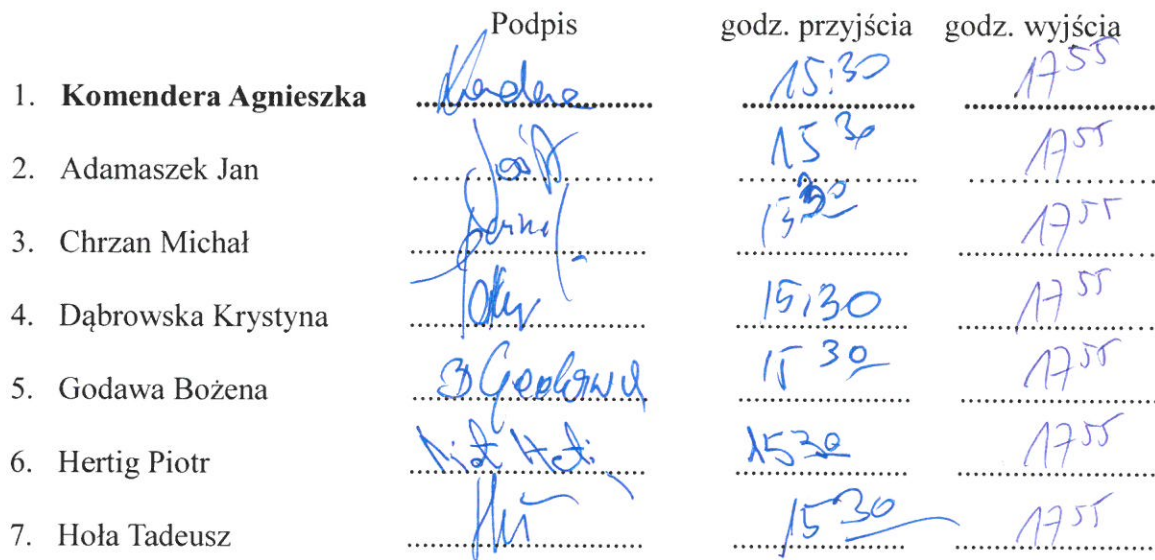 Podpis godz. przyjścia godz. wyjścia
1. Komendera Agnieszka 15:30 17 55
2. Adamaszek Jan 15 30 17 55
3. Chrzan Michał 15 30 17 55
4. Dąbrowska Krystyna 15,30 17 55
5. Godawa Bożena B Godawa 15 30 17 55
6. Hertig Piotr 15 30 17 55
7. Hoła Tadeusz 15 30 17 55